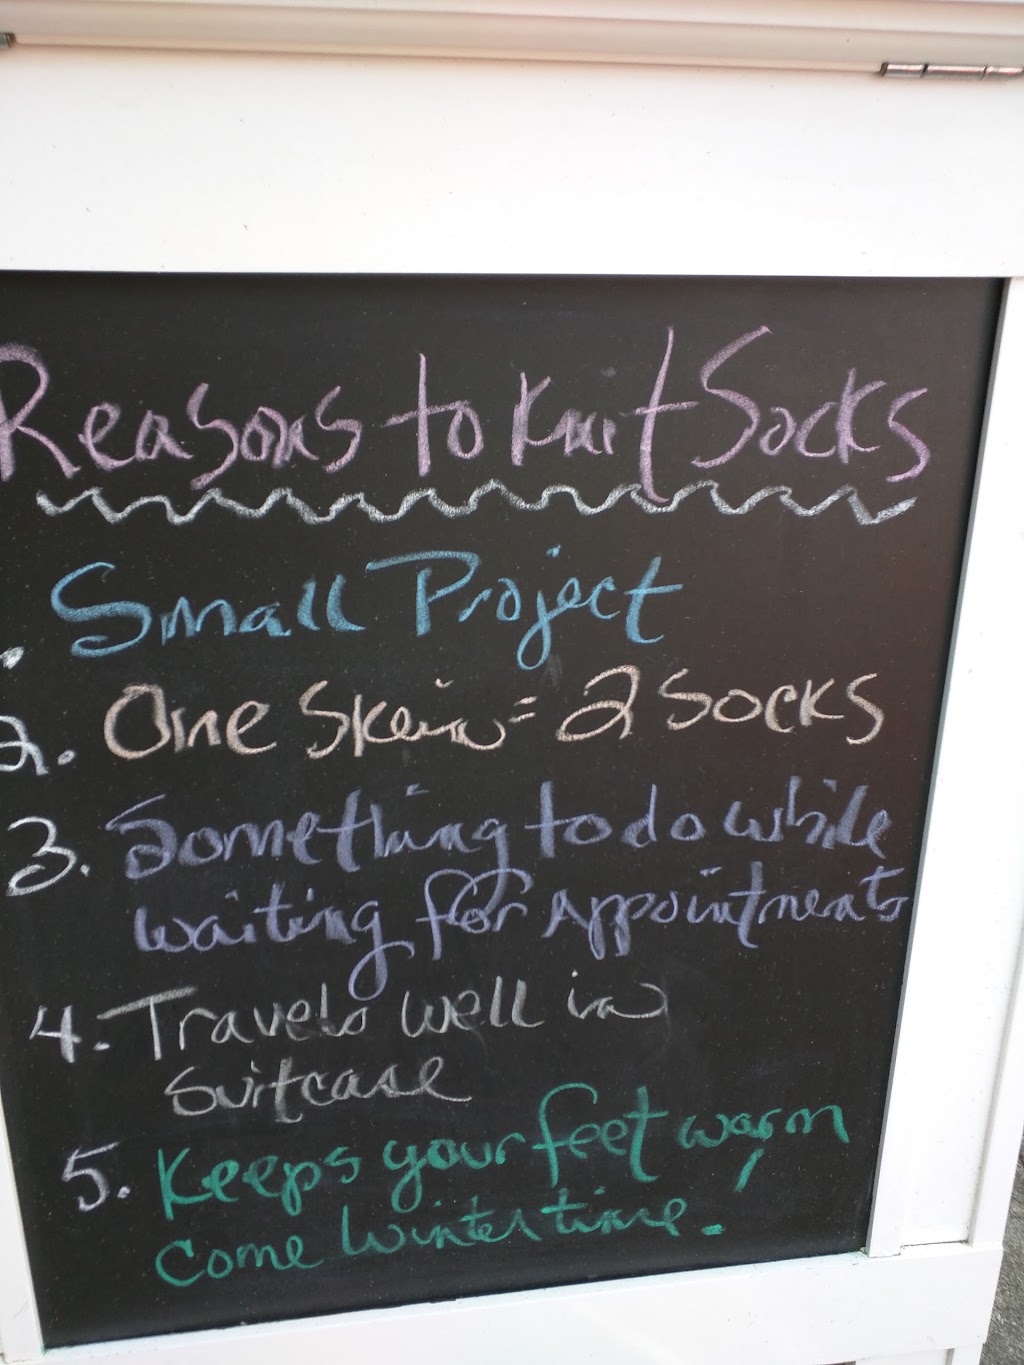 Reasons to knit Socks
. Small Project
2. One Skein = 2 Socks
3. Something to do while
waiting for appointments
4. Travels well in
suitcase
5. Keeps your feet warm,
come wintertime.